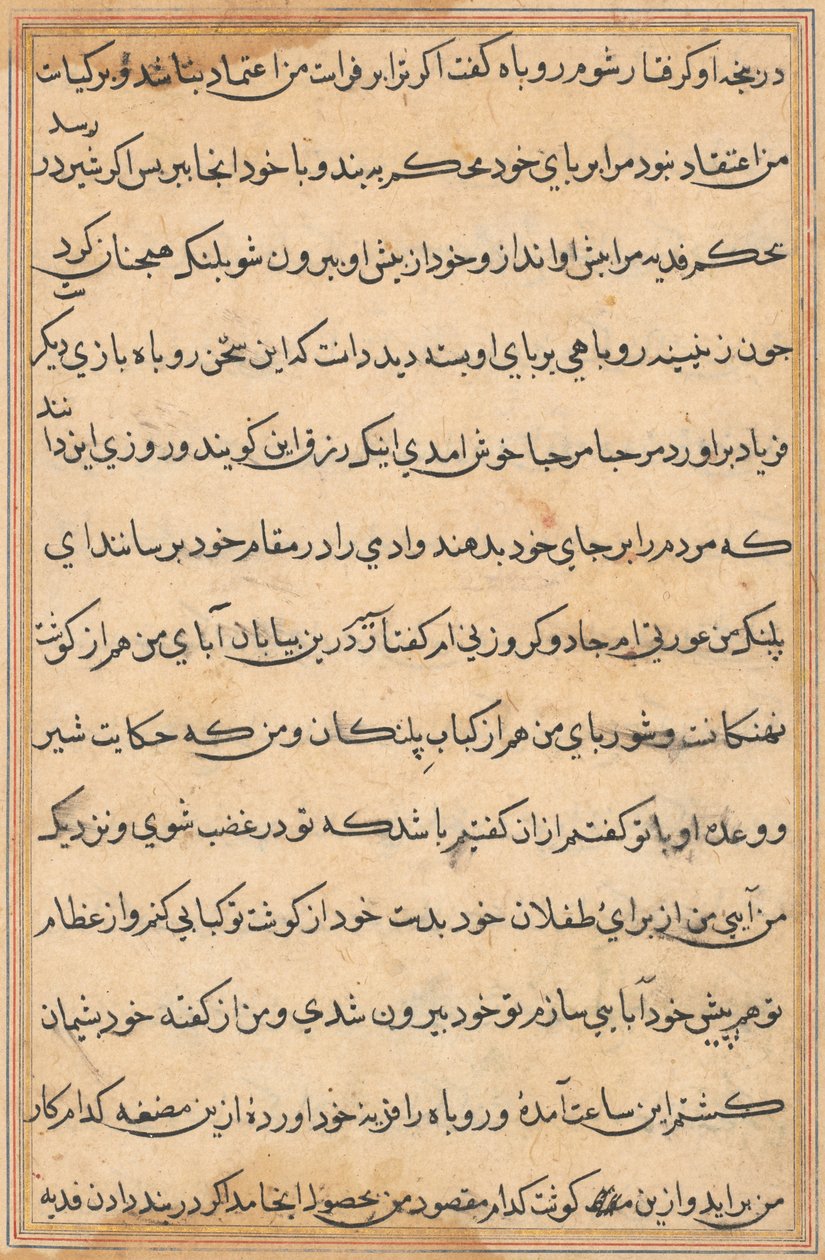 در پنجه او گرفتار شوم روباه گفت اگر ترا بر فراست من اعتماد بنا شد و بر کیاست
من اعتقاد نبود مرا بر پای خود محکم به بند و با خود انجا ببر بس اگر شیر در رسد
بحکم فدیه مرا بیش او انداز و خود از بیش او بیرون شو بلنک همچنان کرد
جون زن بیند روباهی بر پای او بسته دید دانست که این سخن روباه بازی دیگر
فریاد براورد مرحبا مرحبا خوش امدی اینک رزق این کویند و روزی این دانند
که مردم را بر جای خود بدهند و ادمی را در مقام خود برسانند ای
پلنک من عورتی ام جادو کر و زنی ام کفتار درین بیابان آبای من هم از کوشت
نهنکانست و شوربای من هم از کباب پلنکان و من که حکایت شیر
و وعده او با تو کفتم از ان کفتم باشد که تو در غضب شوی و نزدیک
من آیی من از برای طفلان خود بدست خود از کوشت تو کبابی کنم و از عظام
تو هم پیش خود آبایی سازم تو خود بیرون شدی و من از کفته خود بشیمان
کشتم این ساعت آمدهٔ و روباه را فدیه خود اوردهٔ ازین مضغه کدام کار
من براید و ازین کوشت کدام مقصود من بحصول انجامد اکر در بند دادن فدیه